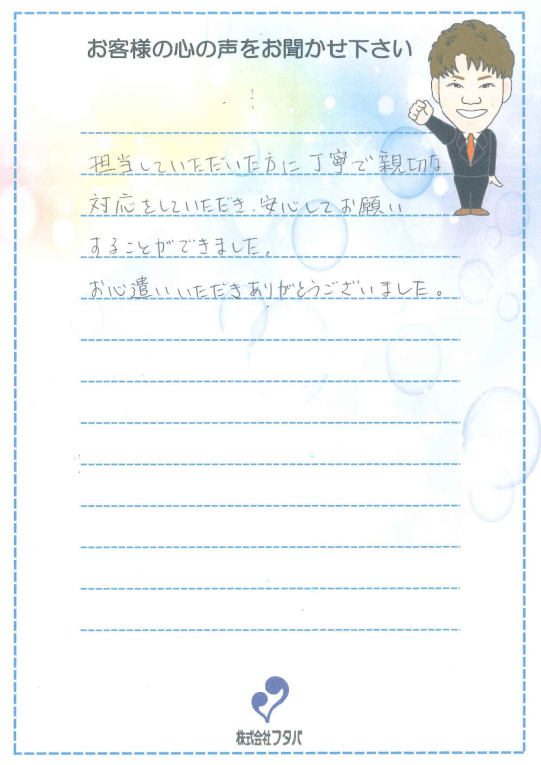 お客様の心の声をお聞かせ下さい
担当していただいた方に丁寧で親切な
対応をしていただき、安心してお願い
することができました。
お心遣いいただきありがとうございました。
株式会社フタバ